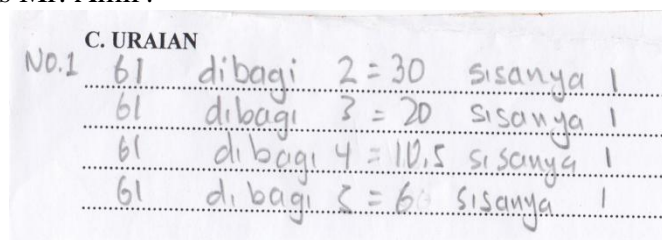 C. URAIAN
No.1 61 dibagi 2 = 30 sisanya 1
61 dibagi 3 = 20 sisanya 1
61 dibagi 4 = 10,5 sisanya 1
61 dibagi = 6 sisanya 1